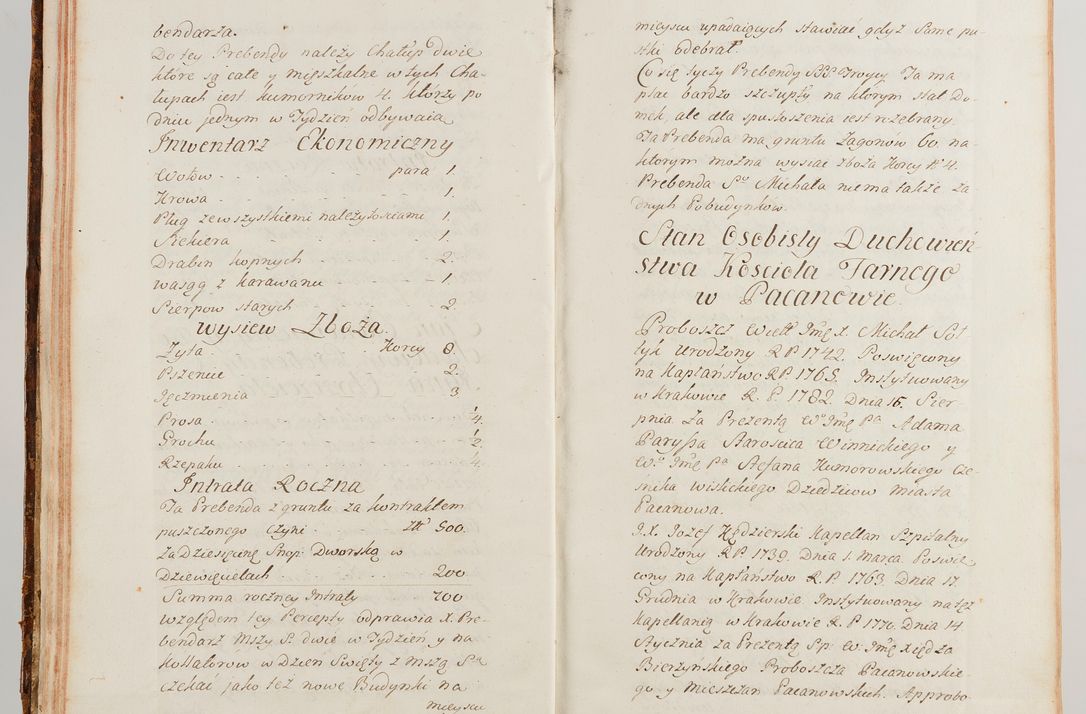 bendarza.
Do tey Prebendy należy Chałup dwie
które są całe y mięszkalne w tych Cha-
łupach iest Kumorników 4. którzy po
dniu jednym w Tydzień odbywaią
Inwentarz Ekonomiczny
Wołów . . . para 1.
Krowa . . . 1.
Pług ze wszystkiemi należytościami 1.
Siekiera . . . 1.
Drabin kopnych . . . 2.
wasąg z karawanu . . 1.
Sierpow starych . . . 2.
wysiew Zboża.
Zyta . . . Korcy 8.
Pszenice . . . 2.
Jęczmienia . . . 3
Prosa . . . ¼.
Grochu . . . ½.
Rzepaku . . . ¼.
Intrata Roczna
Ta Prebenda z gruntu za kontraktem
puszczonego czyni . . . Złt 500.
za Dziesięcinę Snop: Dworską w
Dziewięcielach . . . 200
Summa roczney Intraty 700
względem tey Percepty odprawia X. Pre-
bendarz Mszy S. dwie w Tydzień y na
Kollatorow w Dzień Swięty z Mszą Sta
czekać jako też nowe Budynki na
mieyscu
mieyscu upadaiących stawiać gdyż Same pu-
stki odebrał.
Co się tyczy Prebendy SSS. Troycy Ta ma
plac bardzo szczupły na którym stał Do-
mek, ale dla spustoszenia iest rozebrany
Ta Prebenda ma gruntu Zagonów 60. na
którym można wysiać zboża Korcy No 4.
Prebenda So Michała niema także ża-
dnych Pobudynków.
Stan Osobisty Duchowień-
stwa Kościoła Farnego
w Pacanowie.
Proboszcz Wielk Imę X. Michał Soł-
tyk Urodzony R. P. 1742. Poswięcony
na Kapłaństwo R. P. 1765. Instytuowany
w Krakowie R. P. 1782. Dnia 16. Sier-
pnia Za Prezentą Wo Imę Pa Adama
Paryssa Starościca Winnickiego y
Wo Imę Pa Stefana Kumorowskiego Cze-
snika wislickiego Dziedziców Miasta
Pacanowa.
I. X. Jozef Kędzierski Kapellan Szpitalny
Urodzony R. P. 1739. Dnia 1. Marca. Poswię-
cony na Kapłaństwo R. P. 1763. Dnia 17.
Grudnia w Krakowie. Instytuowany na tęż
Kapellanią w Krakowie R. P. 1770. Dnia 14
Stycznia za Prezentą Sp: W. Imę Xiędza
Bierzyńskiego Proboszcza Pacanowskie-
go y Mieszczan Pacanowskich. Approbo-